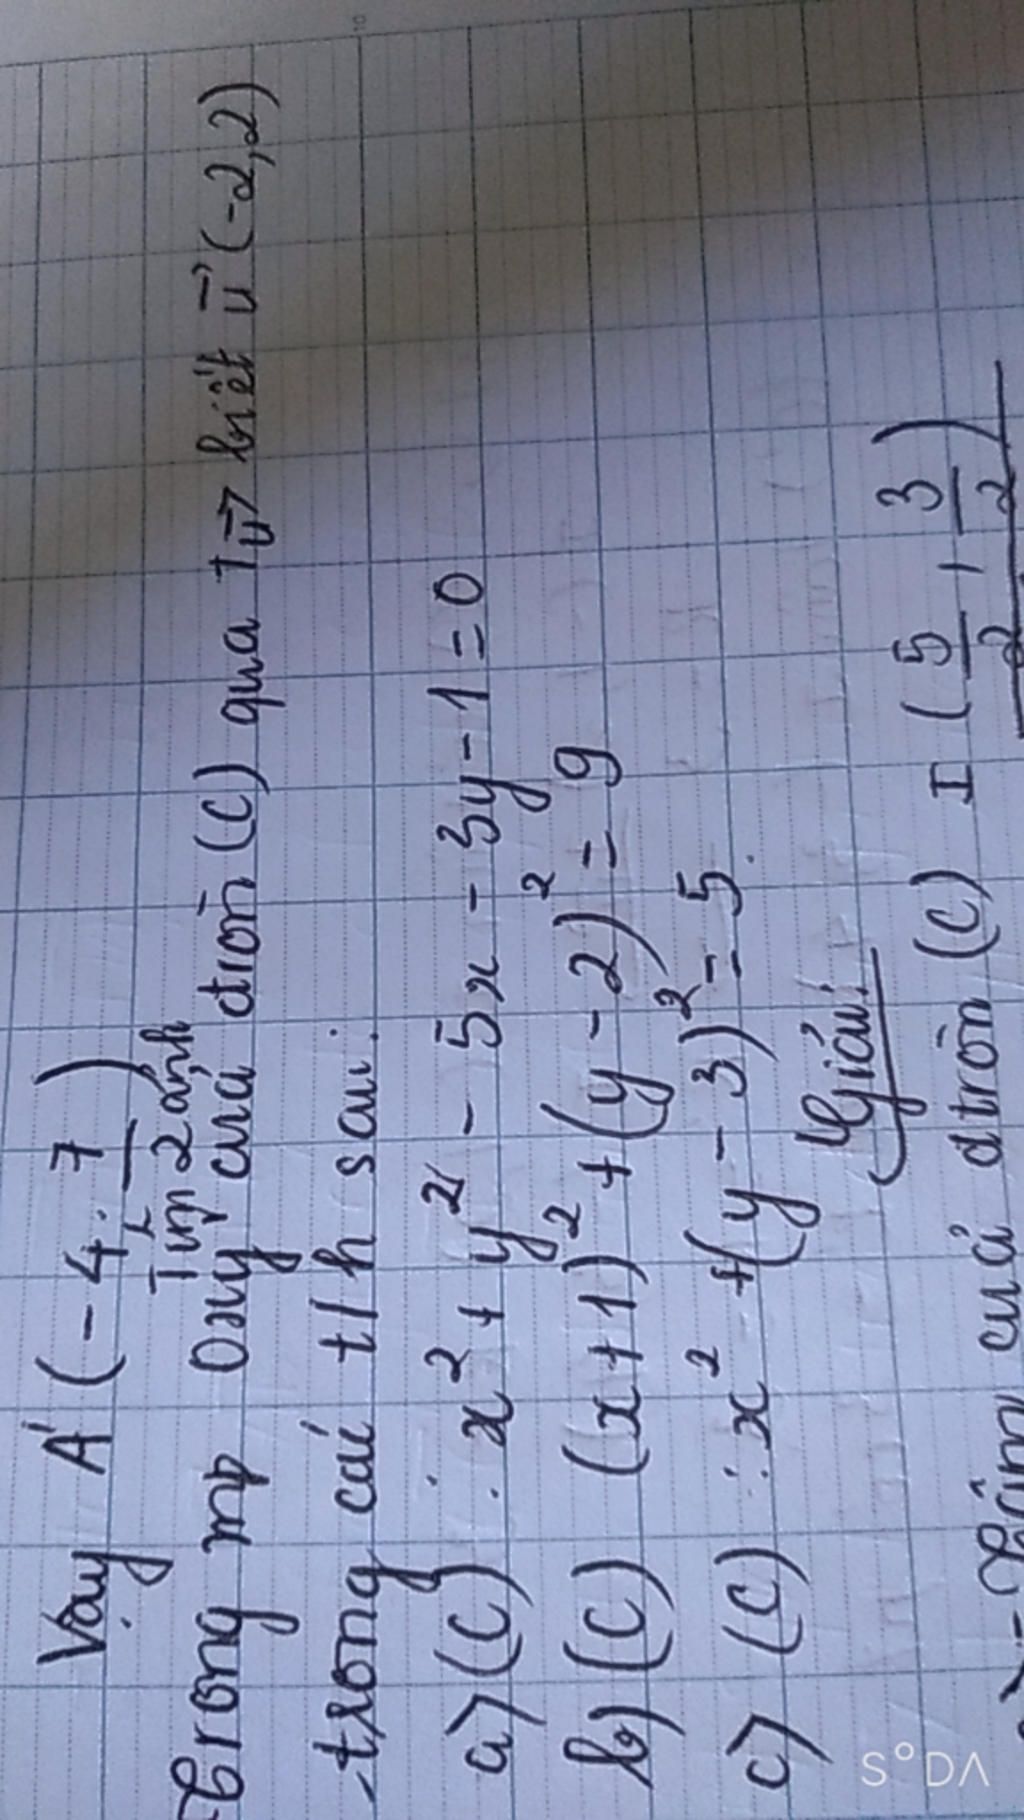 Vậy A' (-4; 7/2)
Tìm ảnh
Trong mp Oxy của đtròn (C) qua Tu⃗ biết u⃗ (-2,2)
trong các t/h sau:
a) (C) : x² + y² - 5x - 3y - 1 = 0
b) (C) (x+1)² + (y-2)² = 9
c) (C) : x² + (y-3)² = 5.
Giải:
Tâm của đtròn (C) I (5/2, 3/2)
S°DA